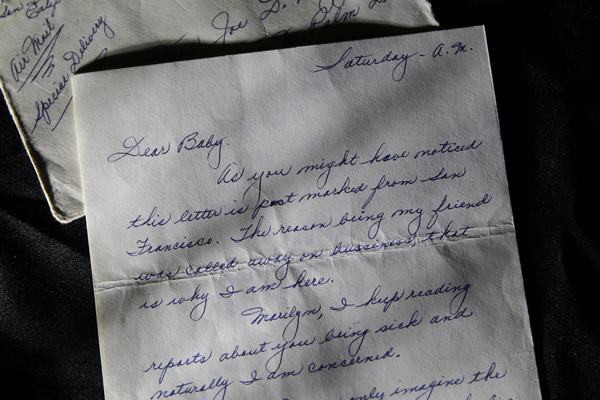 San
Air Mail
Special Delivery
Joe D.
Palm
Saturday - A.M.
Dear Baby.
As you might have noticed
this letter is post marked from San
Francisco. The reason being my friend
was called away on bussiness, that
is why I am here.
Marilyn, I keep reading
reports about you being sick and
naturally I am concerned.
only imagine the